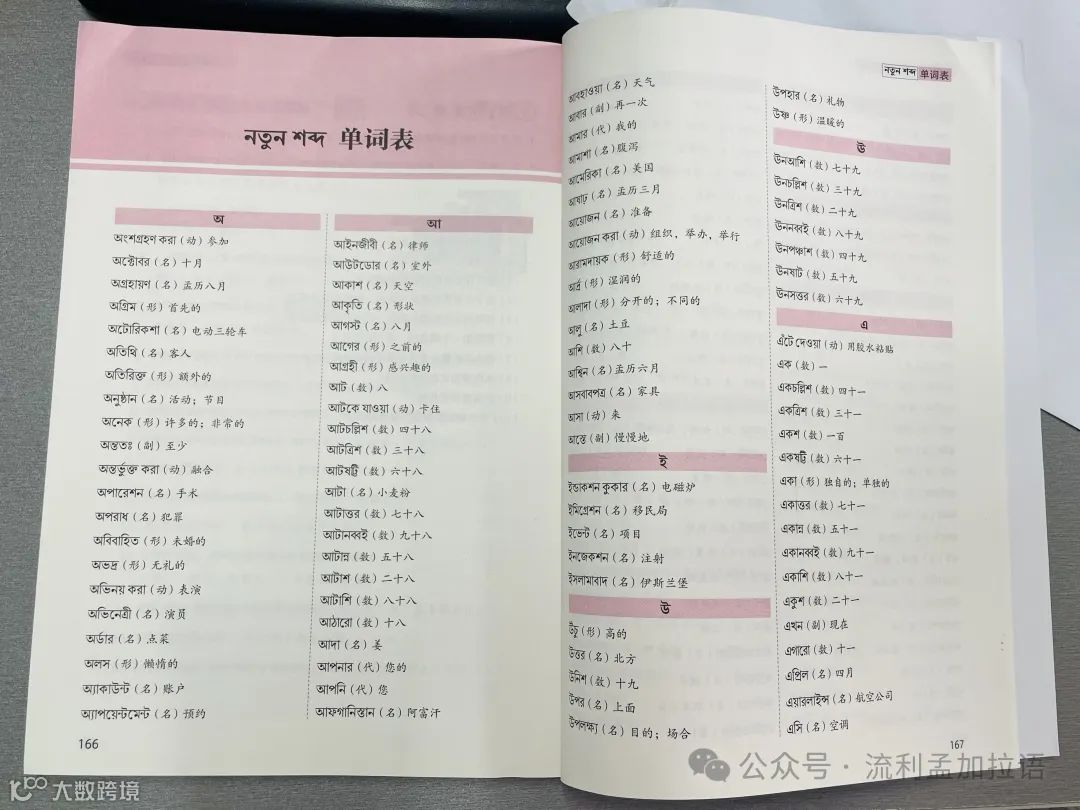 নতুন শব্দ 单词表
অ
অংশগ্রহণ করা (动) 参加
অক্টোবর (名) 十月
অগ্রহায়ণ (名) 孟历八月
অগ্রিম (形) 首先的
অটোরিকশা (名) 电动三轮车
অতিথি (名) 客人
অতিরিক্ত (形) 额外的
অনুষ্ঠান (名) 活动；节目
অনেক (形) 许多的；非常的
অন্ততঃ (副) 至少
অন্তর্ভুক্ত করা (动) 融合
অপারেশন (名) 手术
অপরাধ (名) 犯罪
অবিবাহিত (形) 未婚的
অভদ্র (形) 无礼的
অভিনয় করা (动) 表演
অভিনেত্রী (名) 演员
অর্ডার (名) 点菜
অলস (形) 懒惰的
অ্যাকাউন্ট (名) 账户
অ্যাপয়েন্টমেন্ট (名) 预约
আ
আইনজীবী (名) 律师
আউটডোর (名) 室外
আকাশ (名) 天空
আকৃতি (名) 形状
আগস্ট (名) 八月
আগের (形) 之前的
আগ্রহী (形) 感兴趣的
আট (数) 八
আটকে যাওয়া (动) 卡住
আটচল্লিশ (数) 四十八
আটত্রিশ (数) 三十八
আটষট্টি (数) 六十八
আটা (名) 小麦粉
আটাত্তর (数) 七十八
আটানব্বই (数) 九十八
আটান্ন (数) 五十八
আটাশ (数) 二十八
আটাশি (数) 八十八
আঠারো (数) 十八
আদা (名) 姜
আপনার (代) 您的
আপনি (代) 您
আফগানিস্তান (名) 阿富汗
166
নতুন শব্দ 单词表
আবহাওয়া (名) 天气
আবার (副) 再一次
আমার (代) 我的
আমাশা (名) 腹泻
আমেরিকা (名) 美国
আষাঢ় (名) 孟历三月
আয়োজন (名) 准备
আয়োজন করা (动) 组织，举办，举行
আরামদায়ক (形) 舒适的
আর্দ্র (形) 湿润的
আলাদা (形) 分开的；不同的
আলু (名) 土豆
আশি (数) 八十
আশ্বিন (名) 孟历六月
আসবাবপত্র (名) 家具
আসা (动) 来
আস্তে (副) 慢慢地
ই
ইন্ডাকশন কুকার (名) 电磁炉
ইমিগ্রেশন (名) 移民局
ইভেন্ট (名) 项目
ইনজেকশন (名) 注射
ইসলামাবাদ (名) 伊斯兰堡
উ
উঁচু (形) 高的
উত্তর (名) 北方
উনিশ (数) 十九
উপর (名) 上面
উপলক্ষ্য (名) 目的；场合
উপহার (名) 礼物
উষ্ণ (形) 温暖的
ঊ
ঊনআশি (数) 七十九
ঊনচল্লিশ (数) 三十九
ঊনত্রিশ (数) 二十九
ঊননব্বই (数) 八十九
ঊনপঞ্চাশ (数) 四十九
ঊনষাট (数) 五十九
ঊনসত্তর (数) 六十九
এ
এঁটে দেওয়া (动) 用胶水粘贴
এক (数) 一
একচল্লিশ (数) 四十一
একত্রিশ (数) 三十一
একশ (数) 一百
একষট্টি (数) 六十一
একা (形) 独自的；单独的
একাত্তর (数) 七十一
একান্ন (数) 五十一
একানব্বই (数) 九十一
একাশি (数) 八十一
একুশ (数) 二十一
এখন (副) 现在
এগারো (数) 十一
এপ্রিল (名) 四月
এয়ারলাইন্স (名) 航空公司
এসি (名) 空调
167
公众号 · 流利孟加拉语
大数跨境